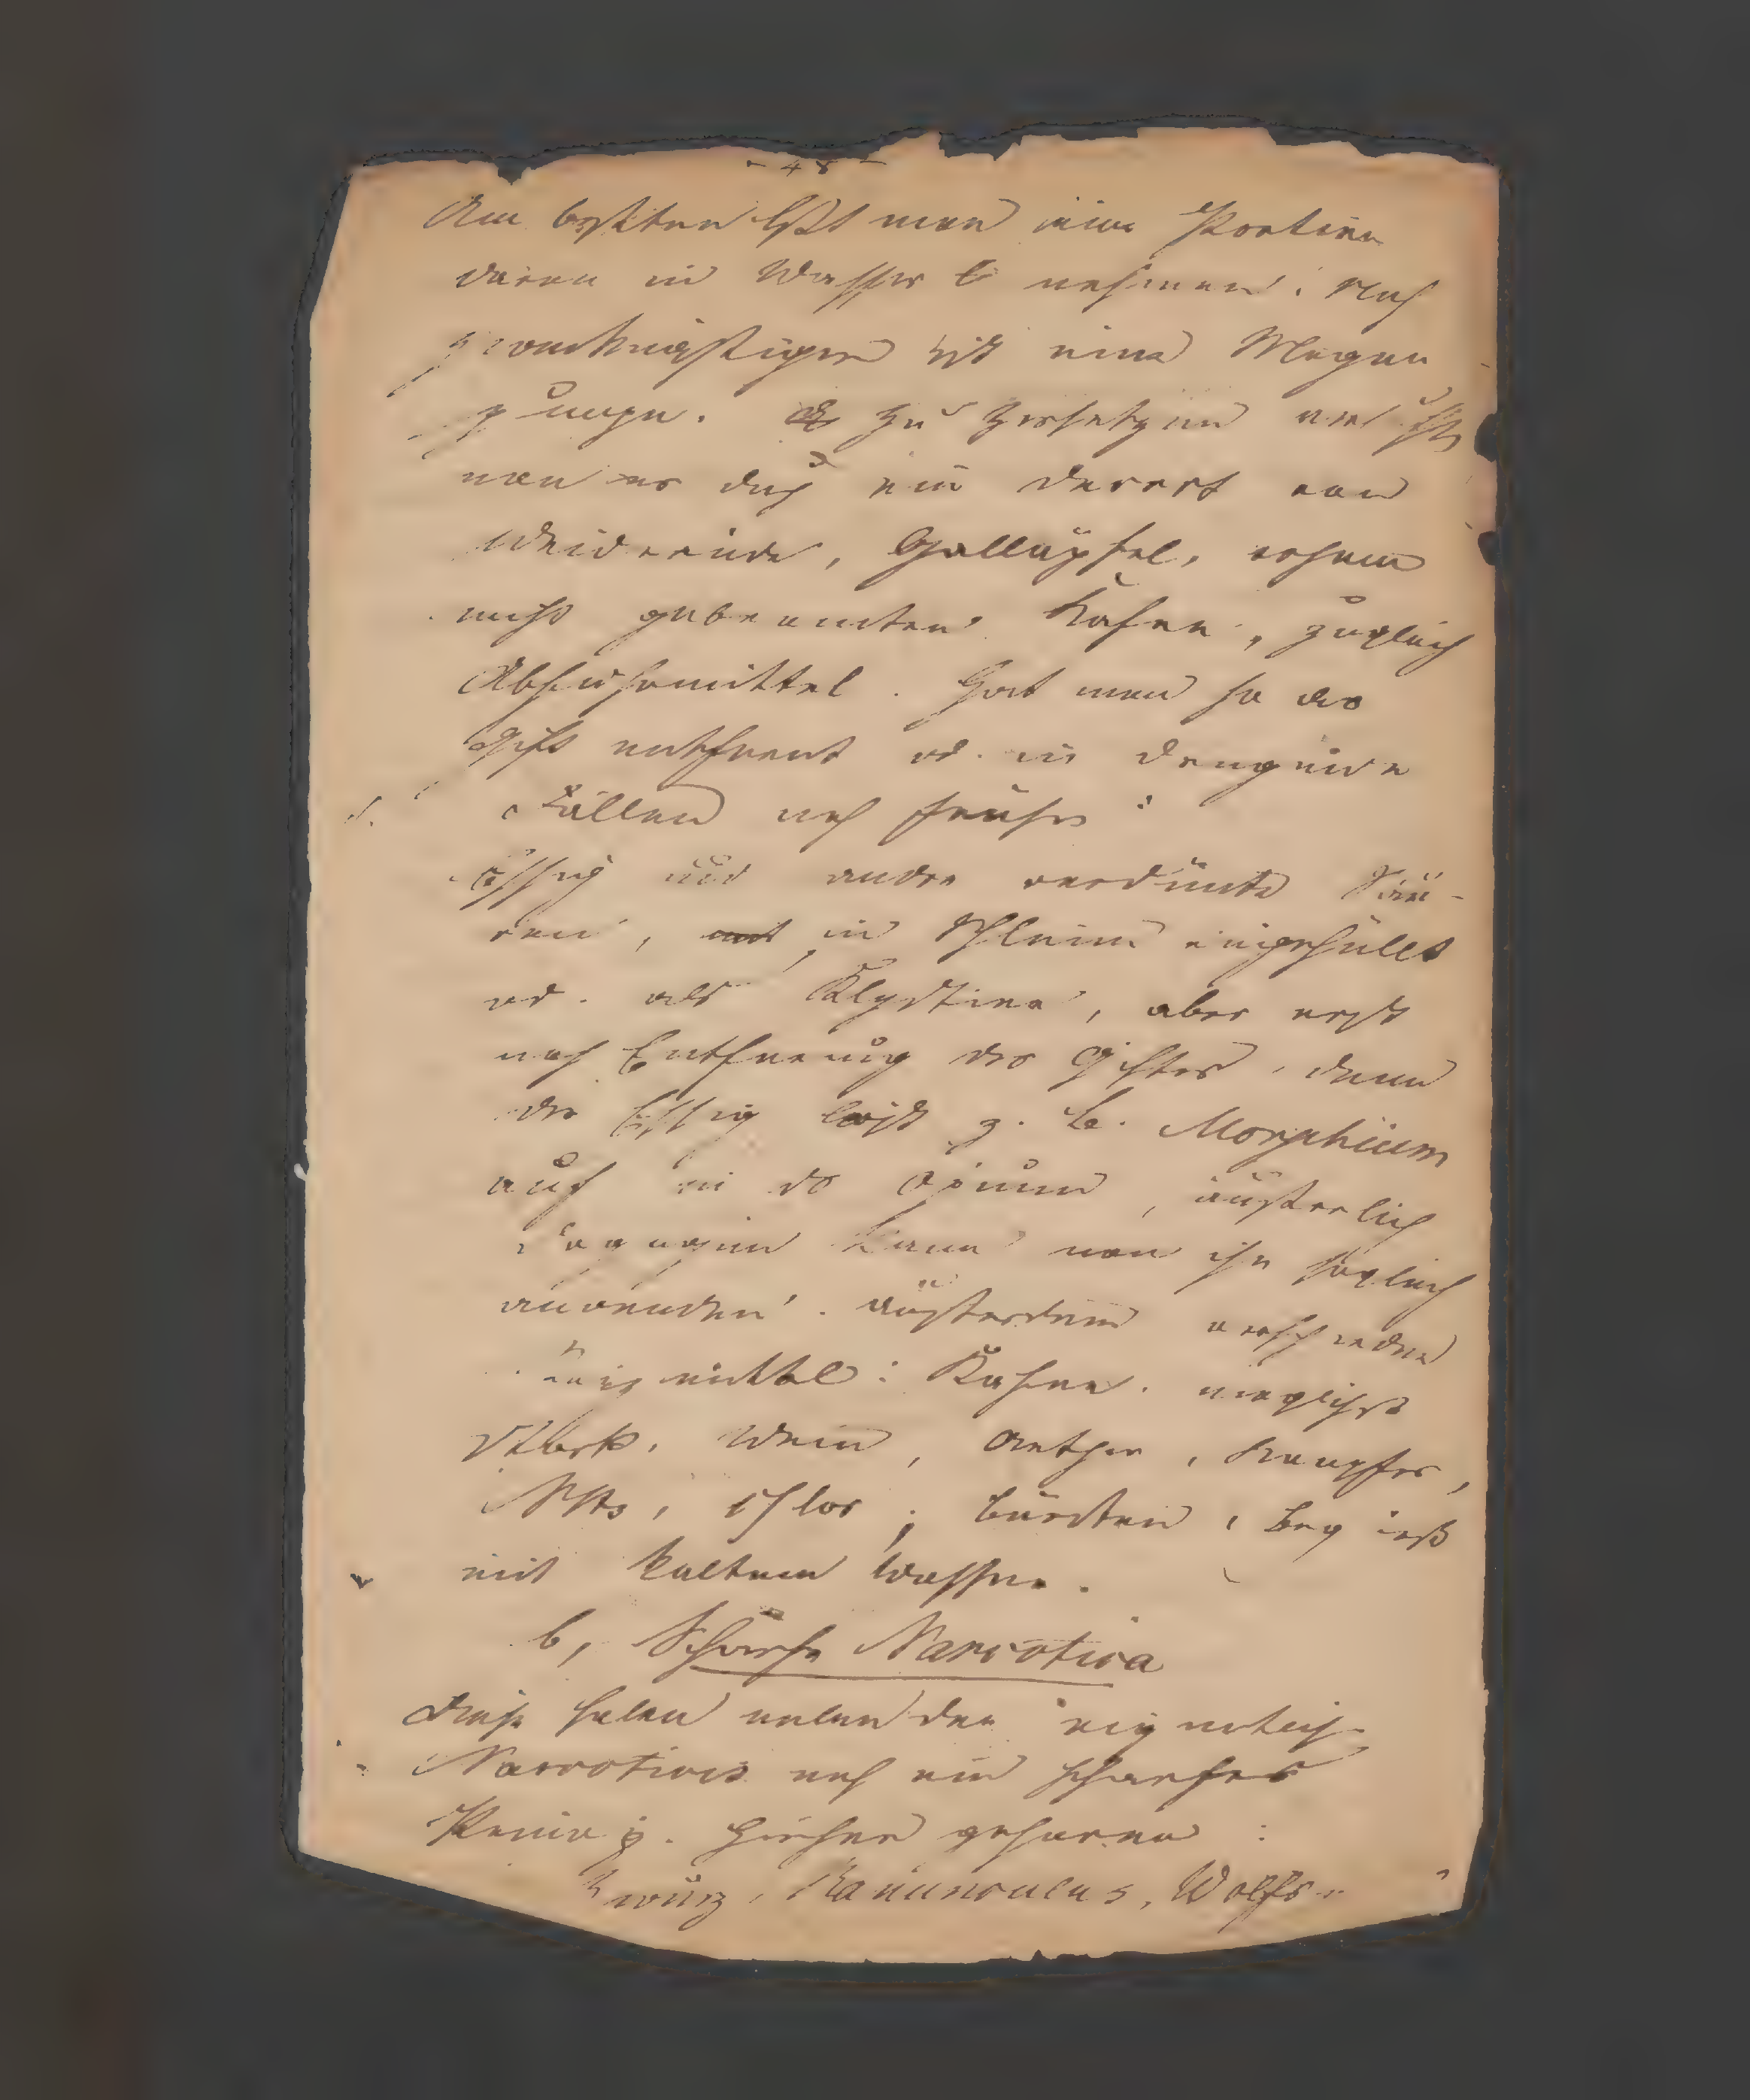 - 48 -
Am besten läßt man eine Portion
davon in Wasser nehmen. Noch
zweckmäßiger ist eine Magen
pumpe. Zu Zersetzung
man es durch ein Decoct von
Weidenrinde, Galläpfel, rohem
nicht gebrannten Kafee, zugleich
Abführmittel. Hat man so das
Gift entfernt od. in dringende
Fällen noch früher:
Essig und andre verdünte Säu-
ren, in Schleim eingehüllt
od. als Klystire, aber erst
nach Entfernung des Giftes, denn
der Essig löst z. B. Morphium
auf in Opium, äußerlich
dagegen kann man ihn sogleich
anwenden. Außerdem verschiedne
Reizmittel: Kafee, möglichst
stark, Wein, Aether, Kampfer,
Chlor; bürsten, Begieß
mit kaltem Wasser.
b, Scharfe Narcotica
Diese haben neben dem eigentlich
Narcotices noch ein scharfes
Princip. Hieher gehören:
wurz, Ranunculus, Wolfs-